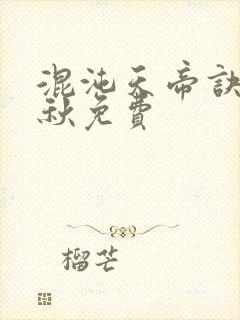 混沌天帝訣
秋免費
榴芒